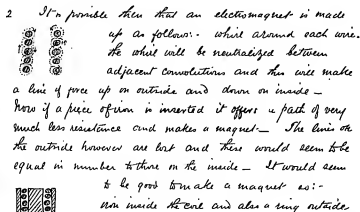 2 It is possible then that an electromagnet is made
up as follows:- whirl around each wire.
the whirl will be neutralized between
adjacent convolutions and this will make
a line of force up on outside and down on inside -
Now if a piece of iron is inserted it offers a path of very
much less resistance and makes a magnet - The lines on
the outside however are lost and there would seem to be
equal in number to those on the inside - It would seem
to be good to make a magnet as:-
iron inside the coil and also a ring outside